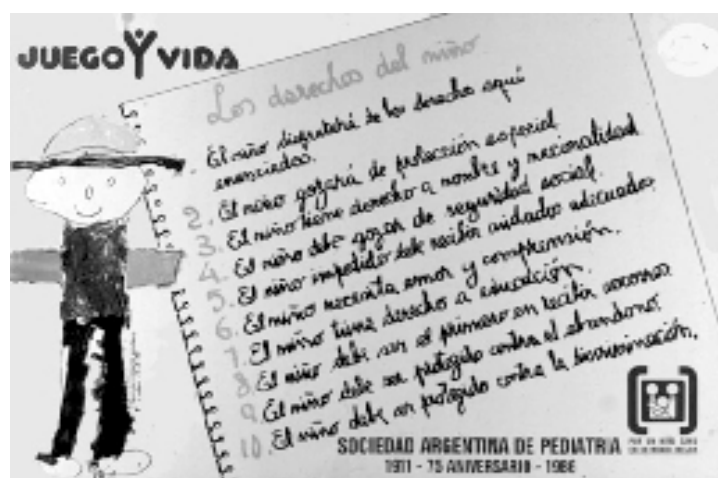 JUEGO Y VIDA
Los derechos del niño
El niño disfrutará de los derechos aquí
enunciados.
2. El niño gozará de protección especial
3. El niño tiene derecho a nombre y nacionalidad
4. El niño debe gozar de seguridad social.
5. El niño impedido debe recibir cuidados adecuados
6. El niño necesita amor y comprensión.
7. El niño tiene derecho a educación.
8. El niño debe ser el primero en recibir socorros
9. El niño debe ser protegido contra el abandono.
10. El niño debe ser protegido contra la discriminación.
SOCIEDAD ARGENTINA DE PEDIATRIA
1911 - 75 ANIVERSARIO - 1986
POR UN NIÑO SANO
EN UN MUNDO MEJOR